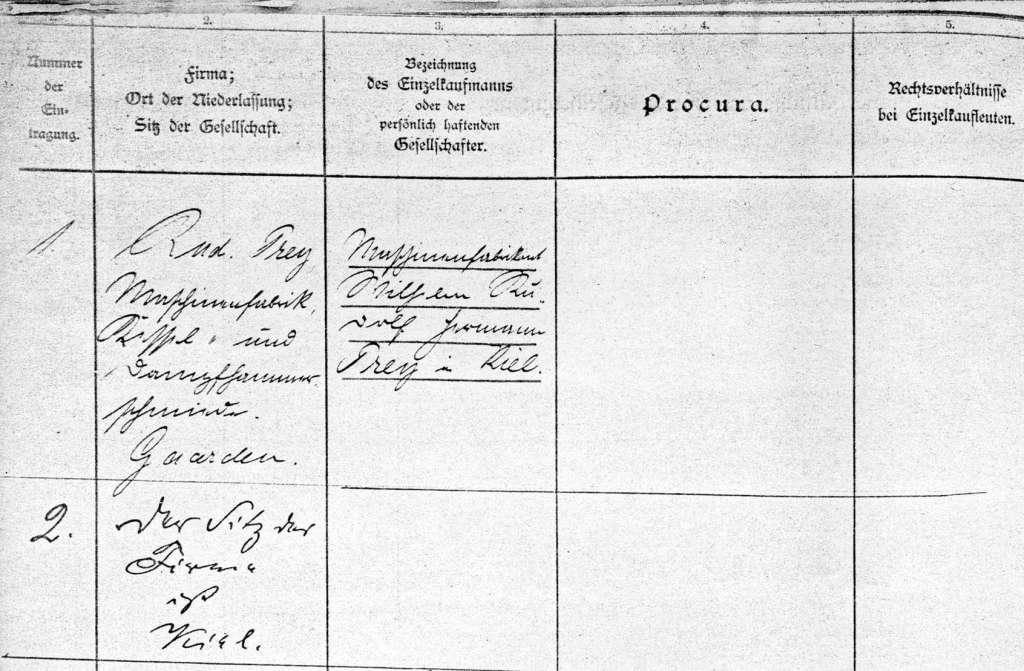 2.
3.
4.
5.
Nummer
der
Ein-
tragung.
Firma;
Ort der Niederlassung;
Sitz der Gesellschaft.
Bezeichnung
des Einzelkaufmanns
oder der
persönlich haftenden
Gesellschafter.
Procura.
Rechtsverhältnisse
bei Einzelkaufleuten.
1.
Rud. Prey
Maschinenfabrik,
Kessel- und
Dampfhammer-
schmiede.
Gaarden.
Maschinenfabrikant
Wilhelm Ru-
dolf Hermann
Prey in Kiel.
2.
Der Sitz der
Firma
ist
Kiel.